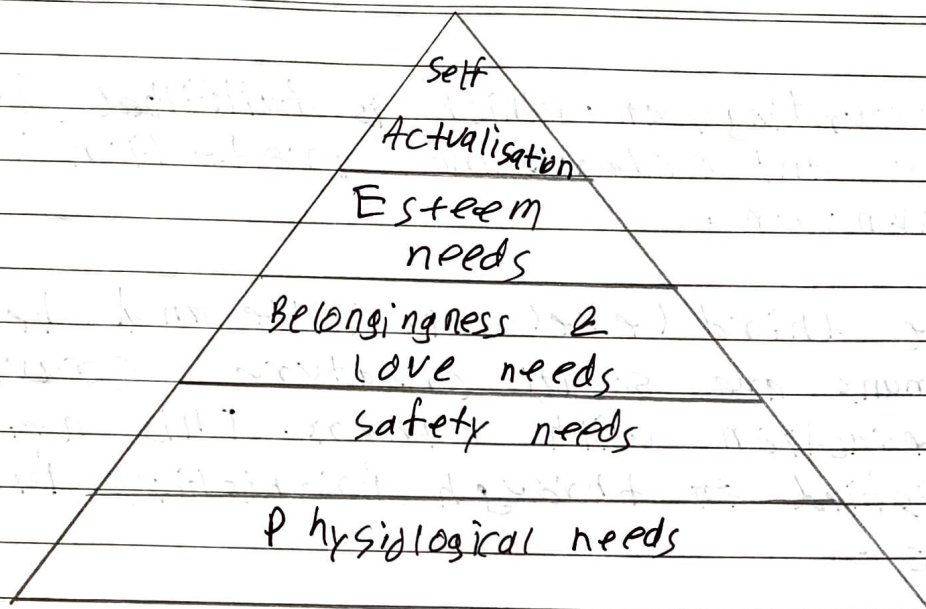 Self
Actualisation
Esteem
needs
Belongingness &
love needs
safety needs
Physiological needs